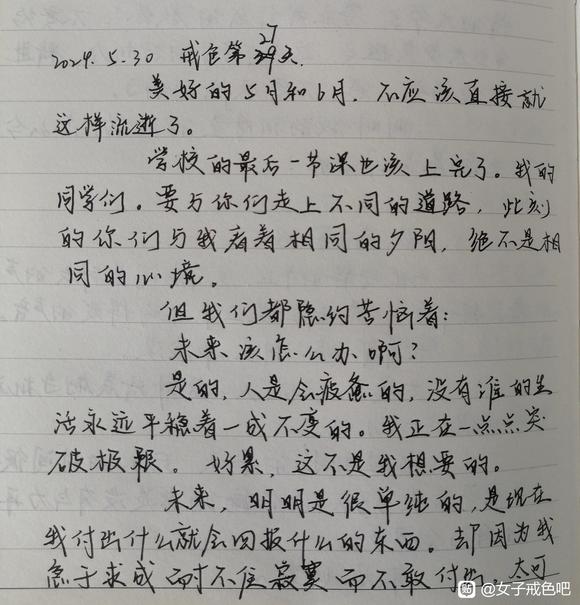 2024.5.30 戒色第27天.
美好的5月和6月,不应该直接就
这样流逝了。
学校的最后一节课也该上完了。我的
同学们。要与你们走上不同的道路,此刻
的你们与我看着相同的夕阳,绝不是相
同的心境。
但我们都隐约苦恼着:
未来该怎么办啊?
是的,人是会疲惫的,没有谁的生
活永远平稳着一成不变的。我正在一点点突
破极限。好累,这不是我想要的。
未来,明明是很单纯的,是现在
我付出什么就会回报什么的东西。却因为我
急于求成而耐不住寂寞而不敢付出。大可
贴 @女子戒色吧